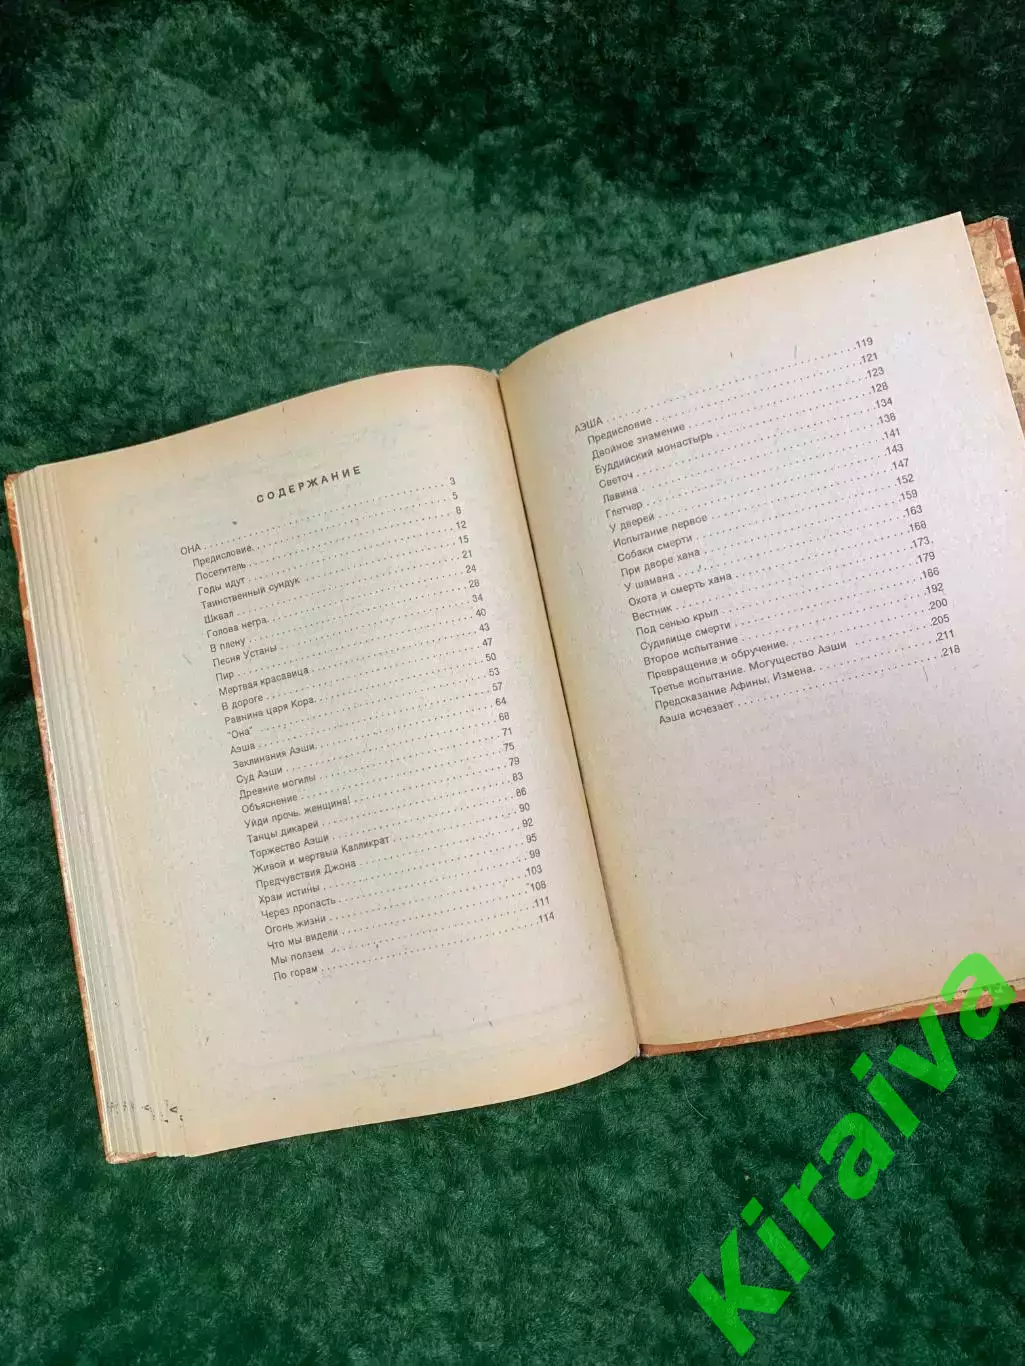 СОДЕРЖАНИЕ
ОНА . . . . . 3
Предисловие. . . . . 5
Посетитель . . . . . 8
Годы идут . . . . . 12
Таинственный сундук . . . . . 15
Шквал . . . . . 21
Голова негра. . . . . 24
В плену . . . . . 28
Песня Устаны . . . . . 34
Пир . . . . . 40
Мертвая красавица . . . . . 43
В дороге . . . . . 47
Равнина царя Кора. . . . . 50
"Она" . . . . . 53
Аэша . . . . . 57
Заклинания Аэши. . . . . 64
Суд Аэши . . . . . 68
Древние могилы . . . . . 71
Объяснение . . . . . 75
Уйди прочь, женщина! . . . . . 79
Танцы дикарей . . . . . 83
Торжество Аэши . . . . . 86
Живой и мертвый Калликрат . . . . . 90
Предчувствия Джона . . . . . 92
Храм истины . . . . . 95
Через пропасть . . . . . 99
Огонь жизни . . . . . 103
Что мы видели . . . . . 108
Мы ползем . . . . . 111
По горам . . . . . 114
АЭША . . . . . 119
Предисловие . . . . . 121
Двойное знамение . . . . . 123
Буддийский монастырь . . . . . 128
Светоч . . . . . 134
Лавина . . . . . 138
Глетчер . . . . . 141
У дверей . . . . . 143
Испытание первое . . . . . 147
Собаки смерти . . . . . 152
При дворе хана . . . . . 159
У шамана . . . . . 163
Охота и смерть хана . . . . . 168
Вестник . . . . . 173
Под сенью крыл . . . . . 179
Судилище смерти . . . . . 186
Второе испытание . . . . . 192
Превращение и обручение. . . . . 200
Третье испытание. Могущество Аэши . . . . . 205
Предсказание Афины. Измена. . . . . 211
Аэша исчезает . . . . . 218
Kiraiva